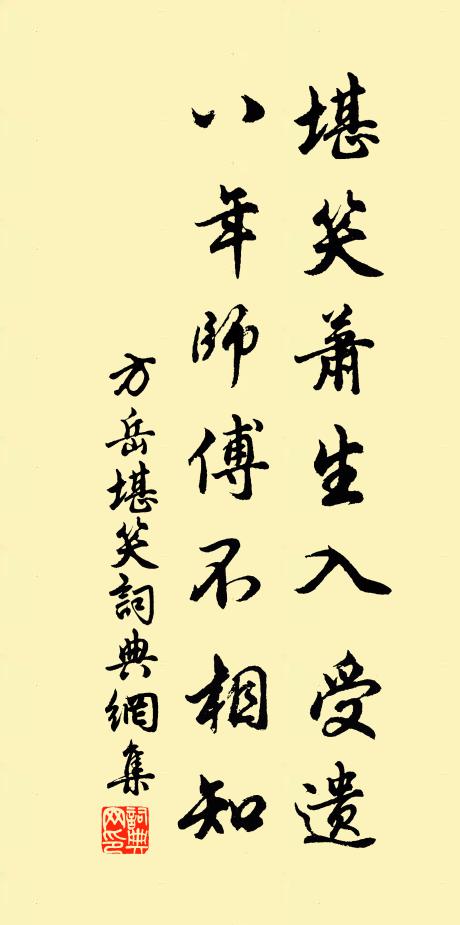 堪笑萧生入受遗
八年師傅不相知
方岳堪笑詞典網集
詞典网印